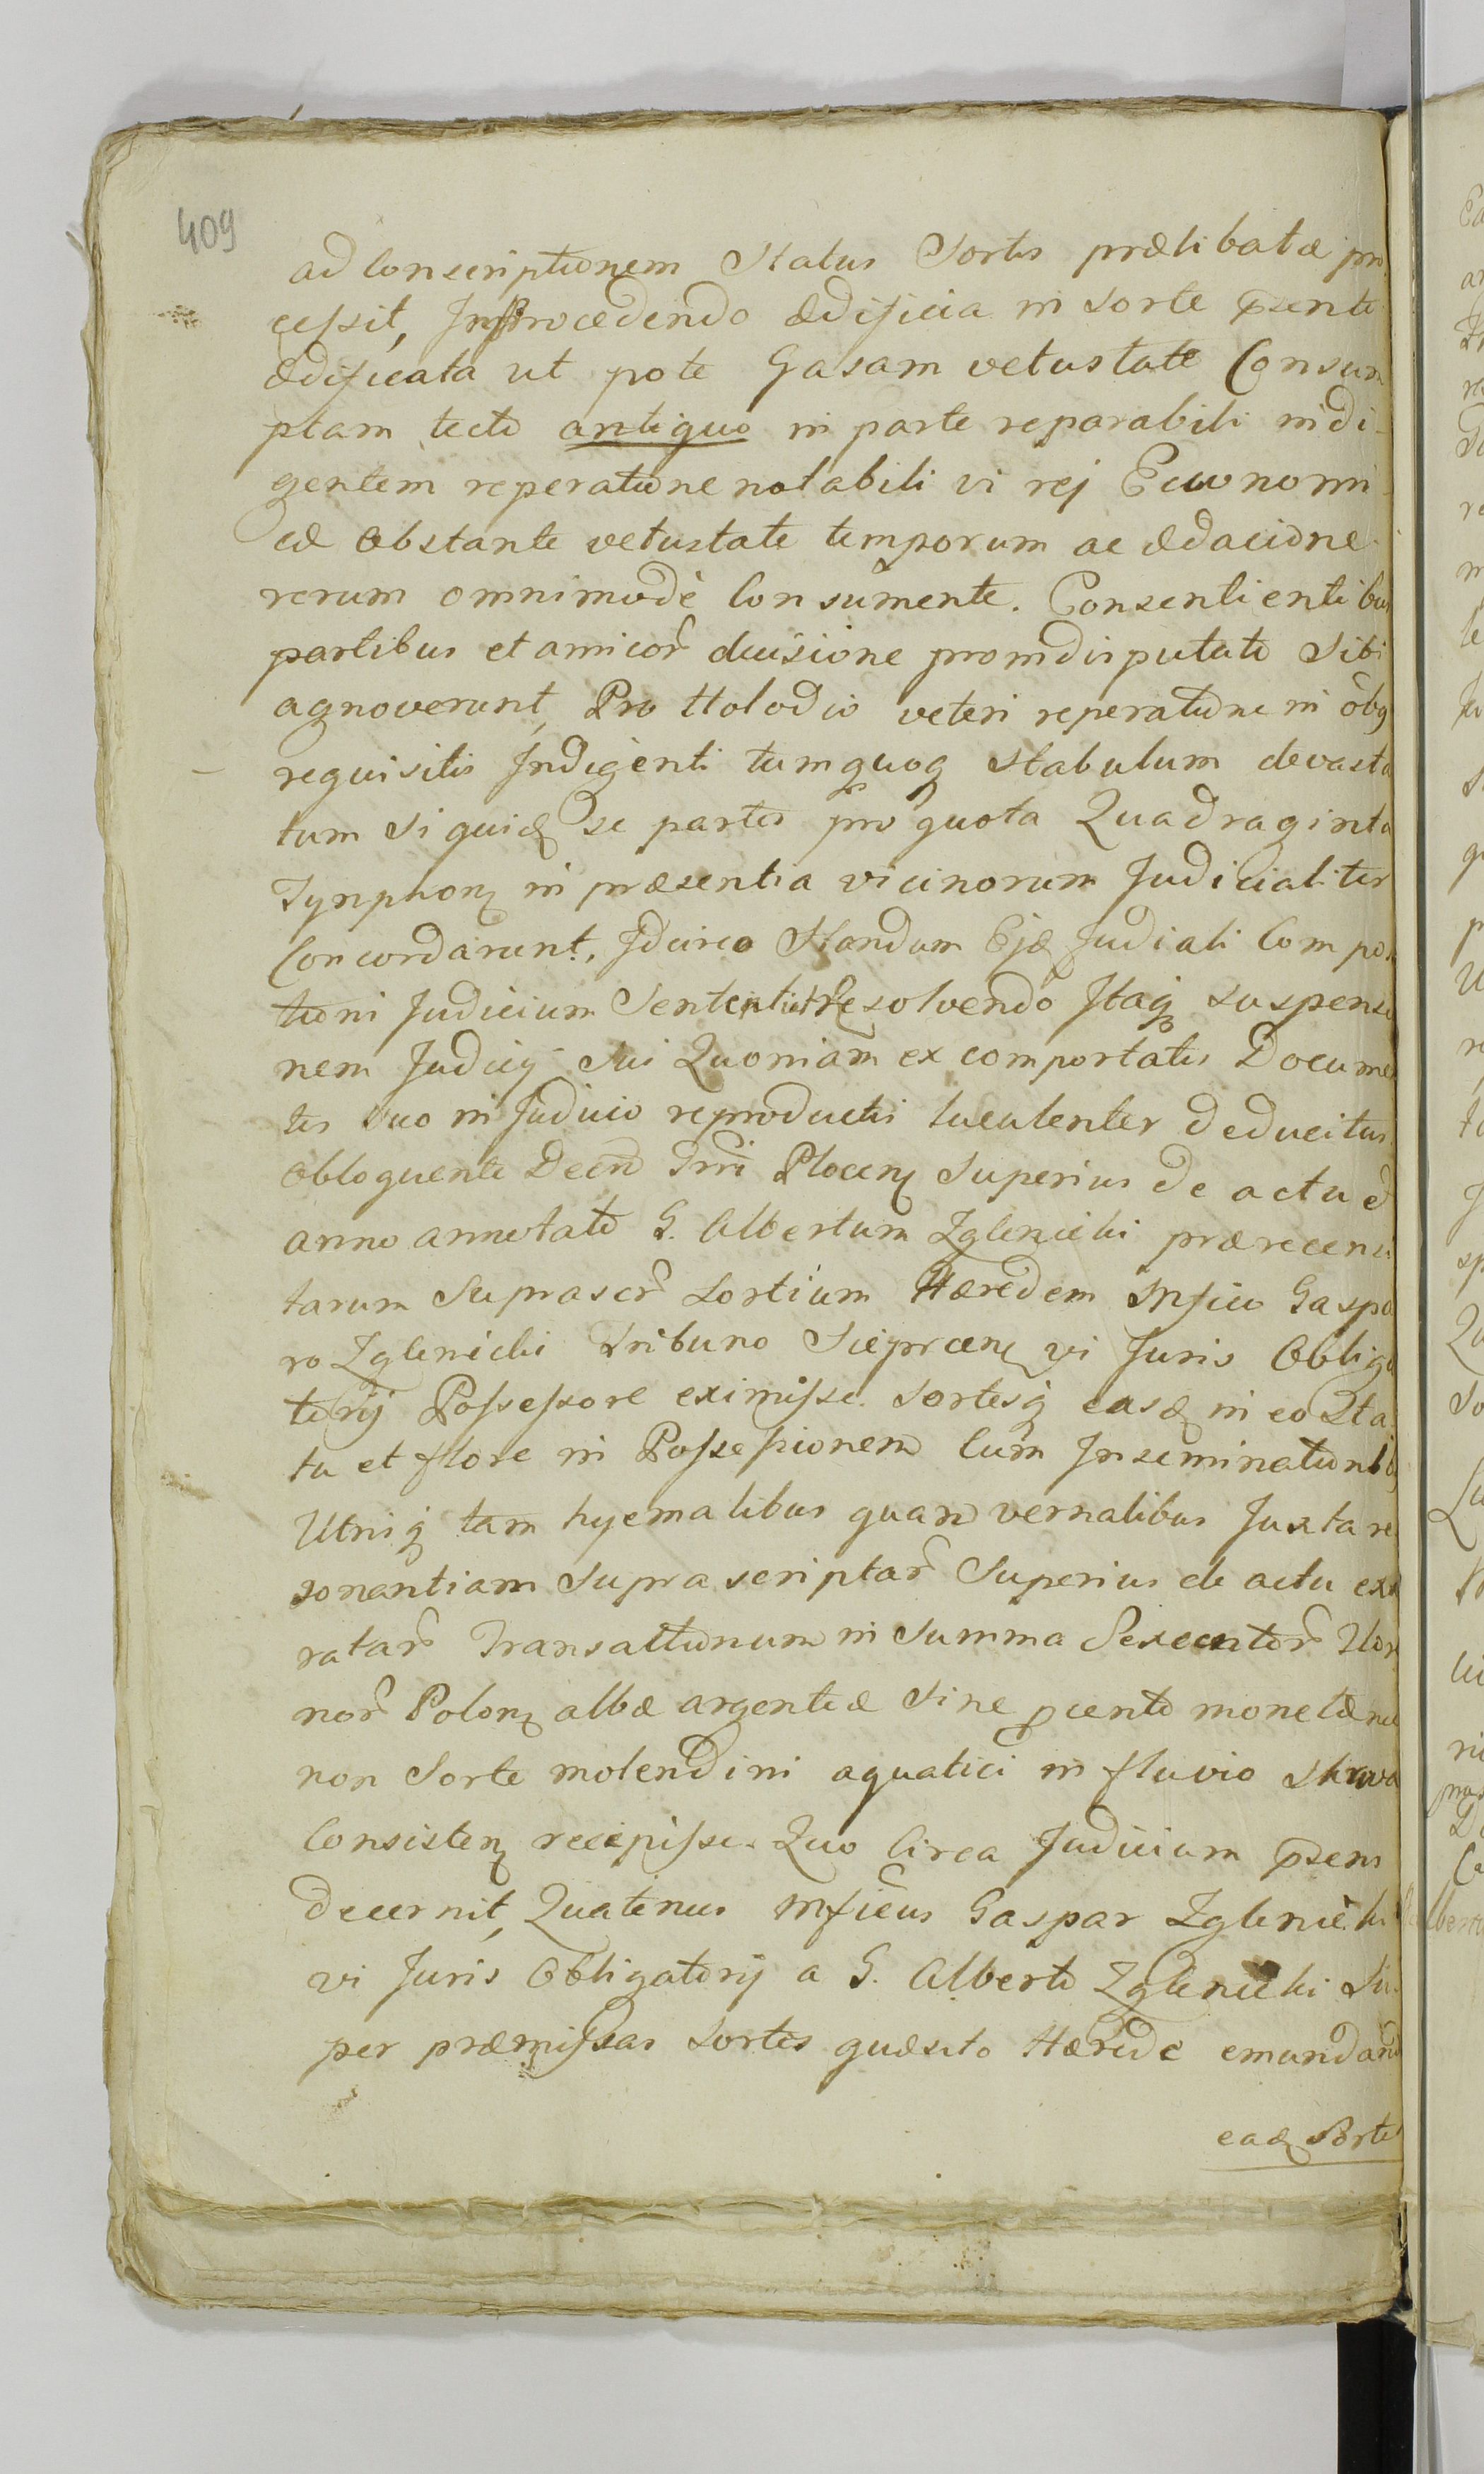 409
ad Conscriptionem Status Sortis prælibatæ pro
cessit, Inprocedendo ædificia in sorte p̄sente
ædificata ut pote Gasam vetustate Consum
ptam tecto antiquo in parte reparabili indi-
gentem reperatione notabili vi rej Economi-
cæ obstante vetustate temporum ac ædacione
rerum omnimodè Consumente. Consentientibus
partibus et amicor̃ decisione promdisputato Sibi
agnoverunt, Pro Holodio veteri reperatione in õbq
requisitis Indigenti tumquoq stabulum devasta
tum siquidem se partes pro quota Quadraginta
Tynphonʒ in præsentia vicinorum Judicialiter
Concordarunt. Idcirco Standum Ejdem Judiali Compor
tioni Judicium Resolvendo Itaq suspensio
nem Judicÿ Sui Quoniam ex comportatis Documen
tis suo in Judicio reproductis luculenter deducitur
obloquente Decrõ Tr̃ri Plocenʒ Superius de actu &
anno annotato G. Albertum Zglenicki prærecensi
tarum Suprascr̃ Sortium Hæredem Mfico Gaspa
ro Zglenicki Tribuno Sieprcenʒ vi Juris Obliga
torij Possessore eximisse. Sortesq easdem in eo Sta
tu et flore in Possessionem Cum Inseminationibq
Utrisq tam hyemalibus quam vernalibus Juxta re
sonantiam Suprascriptar̃ Superius de actu exa
ratar̃ Transactionum in Summa Sexcentor̃ Flor
nor̃ Polonʒ albæ argenteæ Sine p̱cento monetæ nec
non Sorte molendini aquatici in fluvio Skrwa
Consistenʒ recepisse. Quo Circa Judicium p̄sens
decernit, Quatenus Mficus Gaspar Zglenicki
vi Juris Obligatorij a G. Alberto Zglenicki Su
per præmissas Sortes quæsito Hærede emundand
eadem Sortes